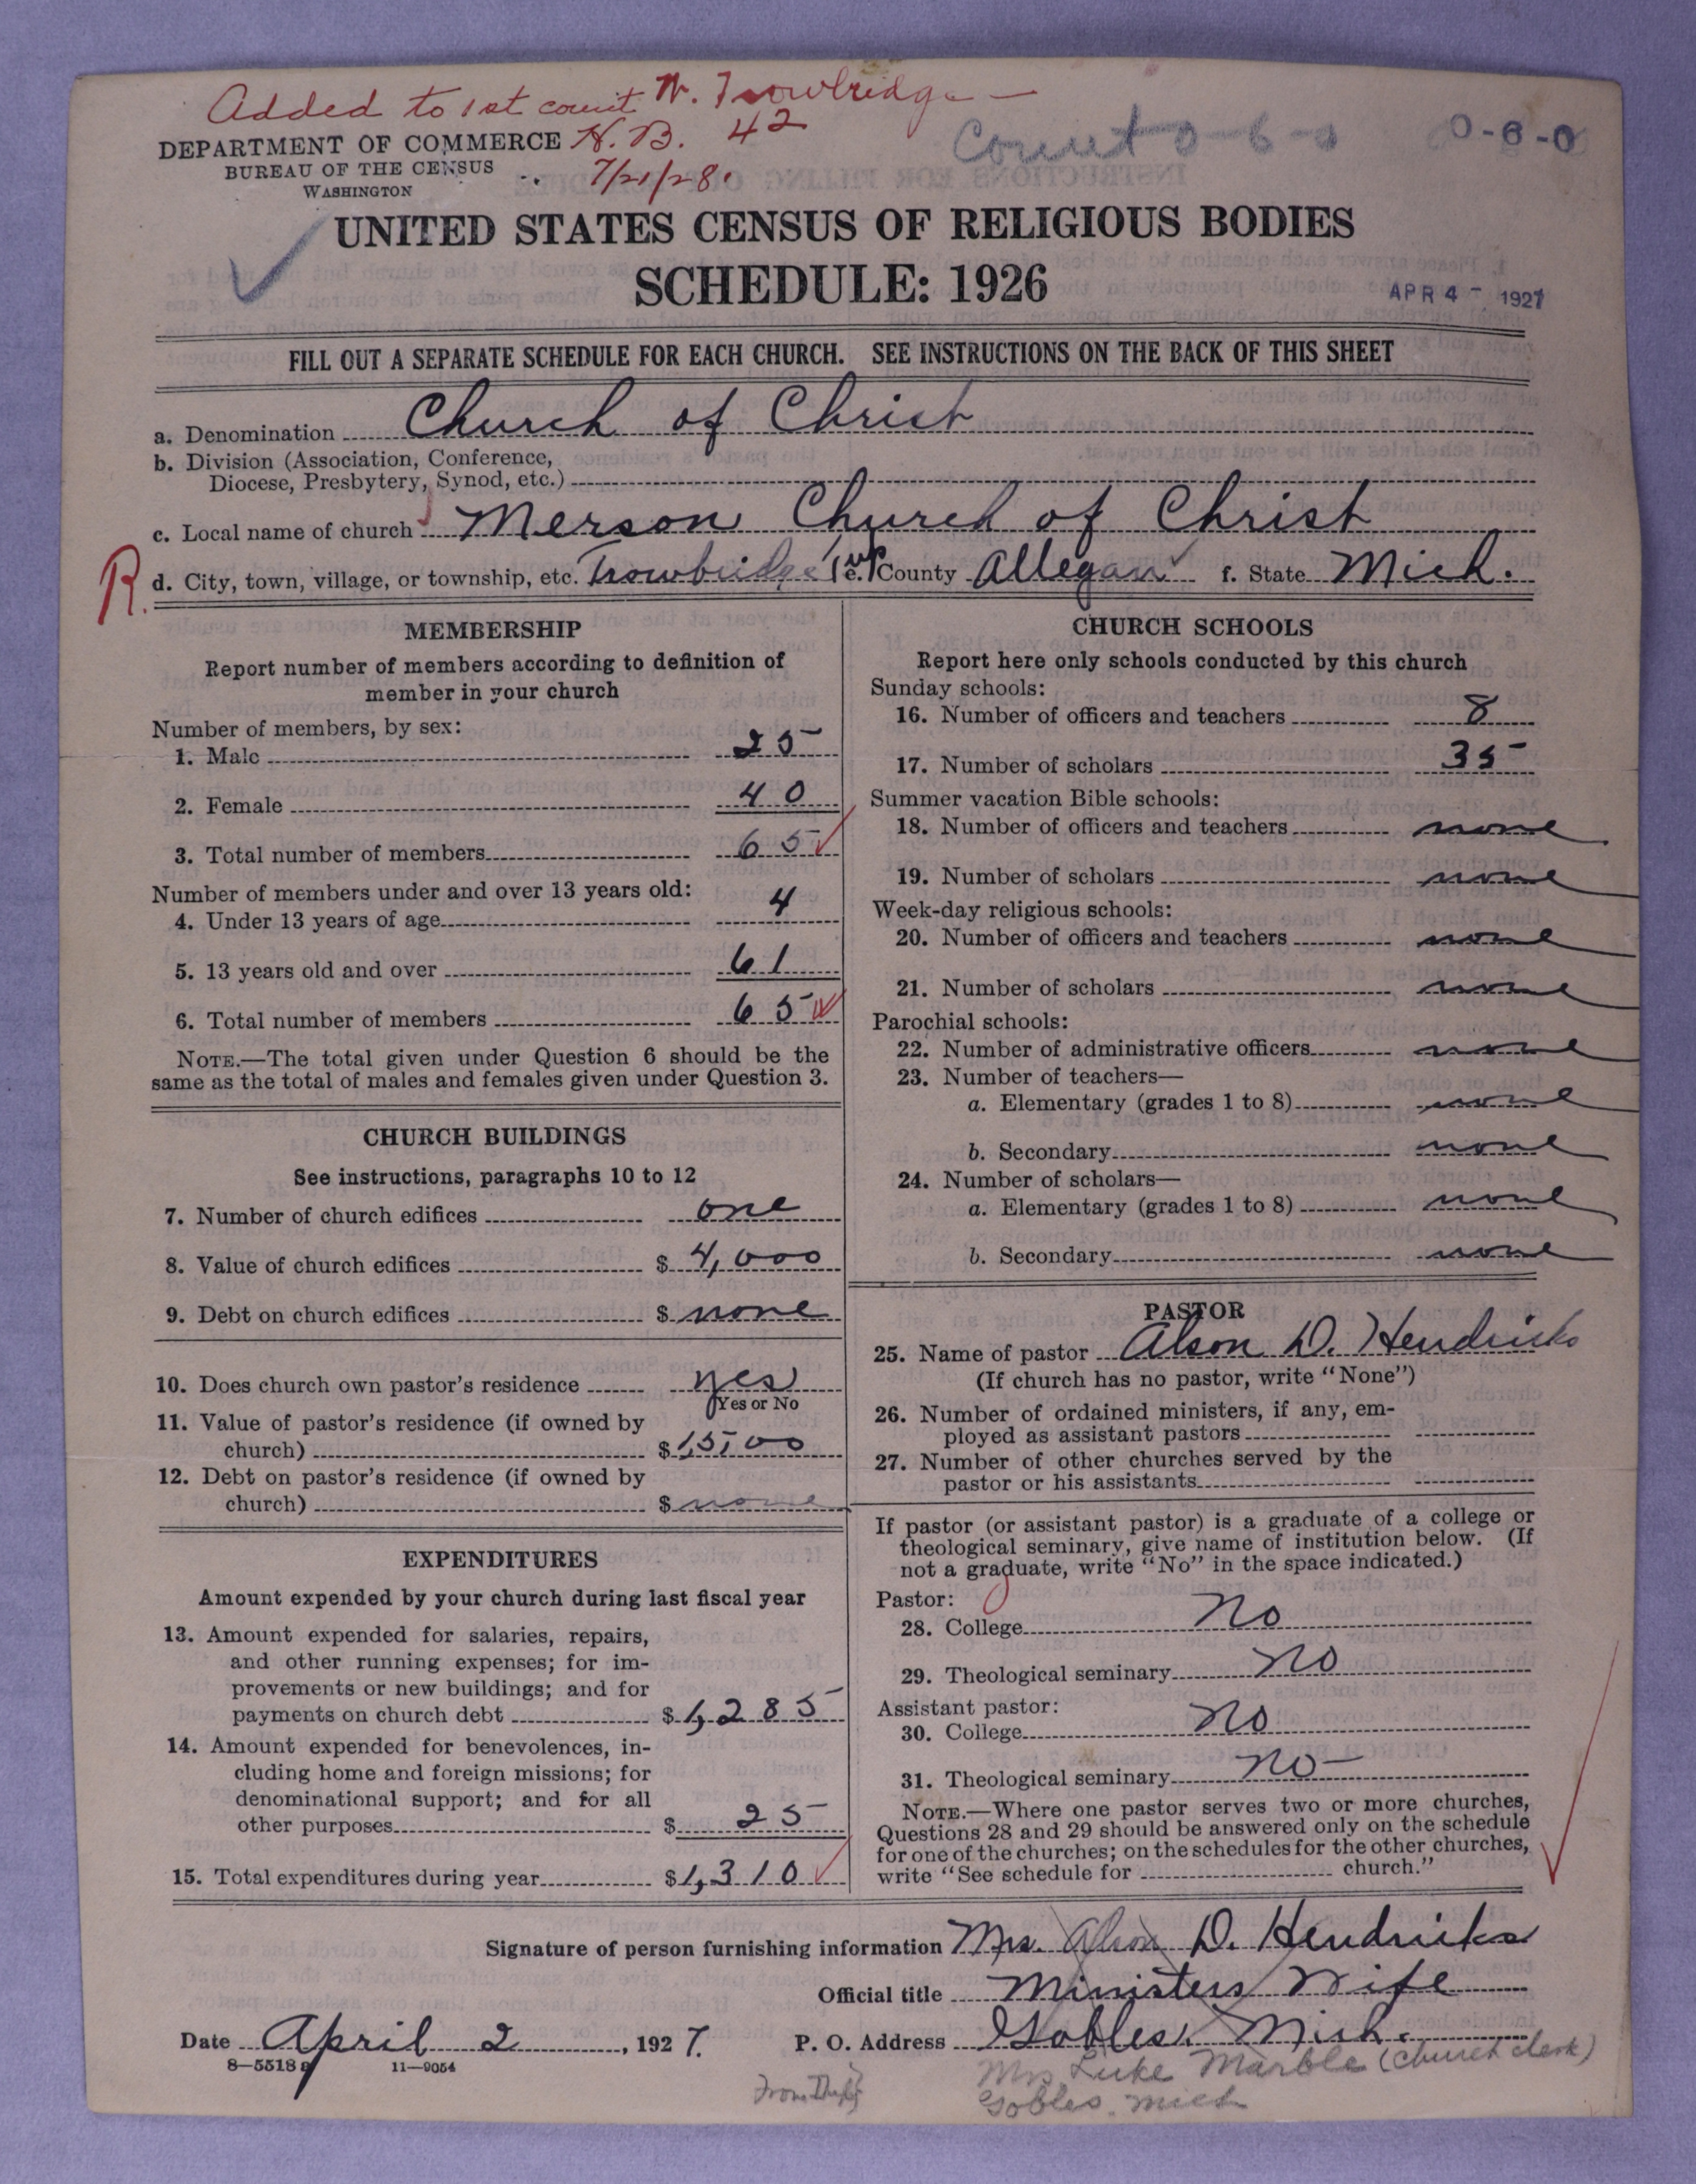 Added to 1st count N. Trowbridge —
H. B. 42
7/21/28.
Count 0-6-0 0-6-0
DEPARTMENT OF COMMERCE
BUREAU OF THE CENSUS
WASHINGTON
UNITED STATES CENSUS OF RELIGIOUS BODIES
SCHEDULE: 1926
APR 4 - 1927
FILL OUT A SEPARATE SCHEDULE FOR EACH CHURCH. SEE INSTRUCTIONS ON THE BACK OF THIS SHEET
a. Denomination Church of Christ
b. Division (Association, Conference,
Diocese, Presbytery, Synod, etc.)
c. Local name of church Merson Church of Christ
R. d. City, town, village, or township, etc. Trowbridge Twp e. County Allegan f. State Mich.
MEMBERSHIP
Report number of members according to definition of
member in your church
Number of members, by sex:
1. Male 25
2. Female 40
3. Total number of members 65
Number of members under and over 13 years old:
4. Under 13 years of age 4
5. 13 years old and over 61
6. Total number of members 65
NOTE.—The total given under Question 6 should be the
same as the total of males and females given under Question 3.
CHURCH BUILDINGS
See instructions, paragraphs 10 to 12
7. Number of church edifices one
8. Value of church edifices $ 4,000
9. Debt on church edifices $ none
10. Does church own pastor's residence yes
Yes or No
11. Value of pastor's residence (if owned by
church) $ 1,500
12. Debt on pastor's residence (if owned by
church) $ none
EXPENDITURES
Amount expended by your church during last fiscal year
13. Amount expended for salaries, repairs,
and other running expenses; for im-
provements or new buildings; and for
payments on church debt $ 1,285
14. Amount expended for benevolences, in-
cluding home and foreign missions; for
denominational support; and for all
other purposes $ 25
15. Total expenditures during year $ 1,310
CHURCH SCHOOLS
Report here only schools conducted by this church
Sunday schools:
16. Number of officers and teachers 8
17. Number of scholars 35
Summer vacation Bible schools:
18. Number of officers and teachers none
19. Number of scholars none
Week-day religious schools:
20. Number of officers and teachers none
21. Number of scholars none
Parochial schools:
22. Number of administrative officers none
23. Number of teachers—
a. Elementary (grades 1 to 8) none
b. Secondary none
24. Number of scholars—
a. Elementary (grades 1 to 8) none
b. Secondary none
PASTOR
25. Name of pastor Alson D. Hendricks
(If church has no pastor, write "None")
26. Number of ordained ministers, if any, em-
ployed as assistant pastors
27. Number of other churches served by the
pastor or his assistants
If pastor (or assistant pastor) is a graduate of a college or
theological seminary, give name of institution below. (If
not a graduate, write "No" in the space indicated.)
Pastor:
28. College No
29. Theological seminary No
Assistant pastor:
30. College No
31. Theological seminary No
NOTE.—Where one pastor serves two or more churches,
Questions 28 and 29 should be answered only on the schedule
for one of the churches; on the schedules for the other churches,
write "See schedule for church."
Signature of person furnishing information Mrs. Alson D. Hendricks
Official title Ministers Wife
Date April 2, 1927. P. O. Address Gobles, Mich.
8—5518 a 11—9054
Mrs Luke Marble (church clerk)
Gobles, Mich